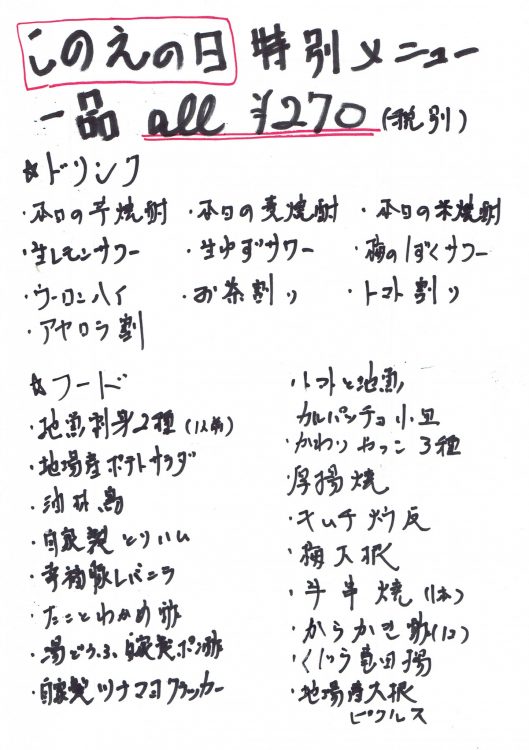 このえの日 特別メニュー
一品 all ¥270(税別)
☆ドリンク
・本日の芋焼酎 ・本日の麦焼酎 ・本日の米焼酎
・生レモンサワー ・生ゆずサワー ・梅のしずくサワー
・ウーロンハイ ・お茶割り ・トマト割り
・アセロラ割
☆フード
・地魚刺身2種(1人前)
・地場産ポテトサラダ
・油淋鶏
・自家製とりハム
・幸福豚レバニラ
・たことわかめ酢
・湯どうふ、自家製ポン酢
・自家製ツナマヨクラッカー
・トマトと地魚
カルパッチョ小皿
・かわりやっこ3種
・厚揚焼
・キムチ炒反
・梅大根
・牛串焼(1本)
・からかき酢(1コ)
・くじら竜田揚
・地場産大根
ピクルス